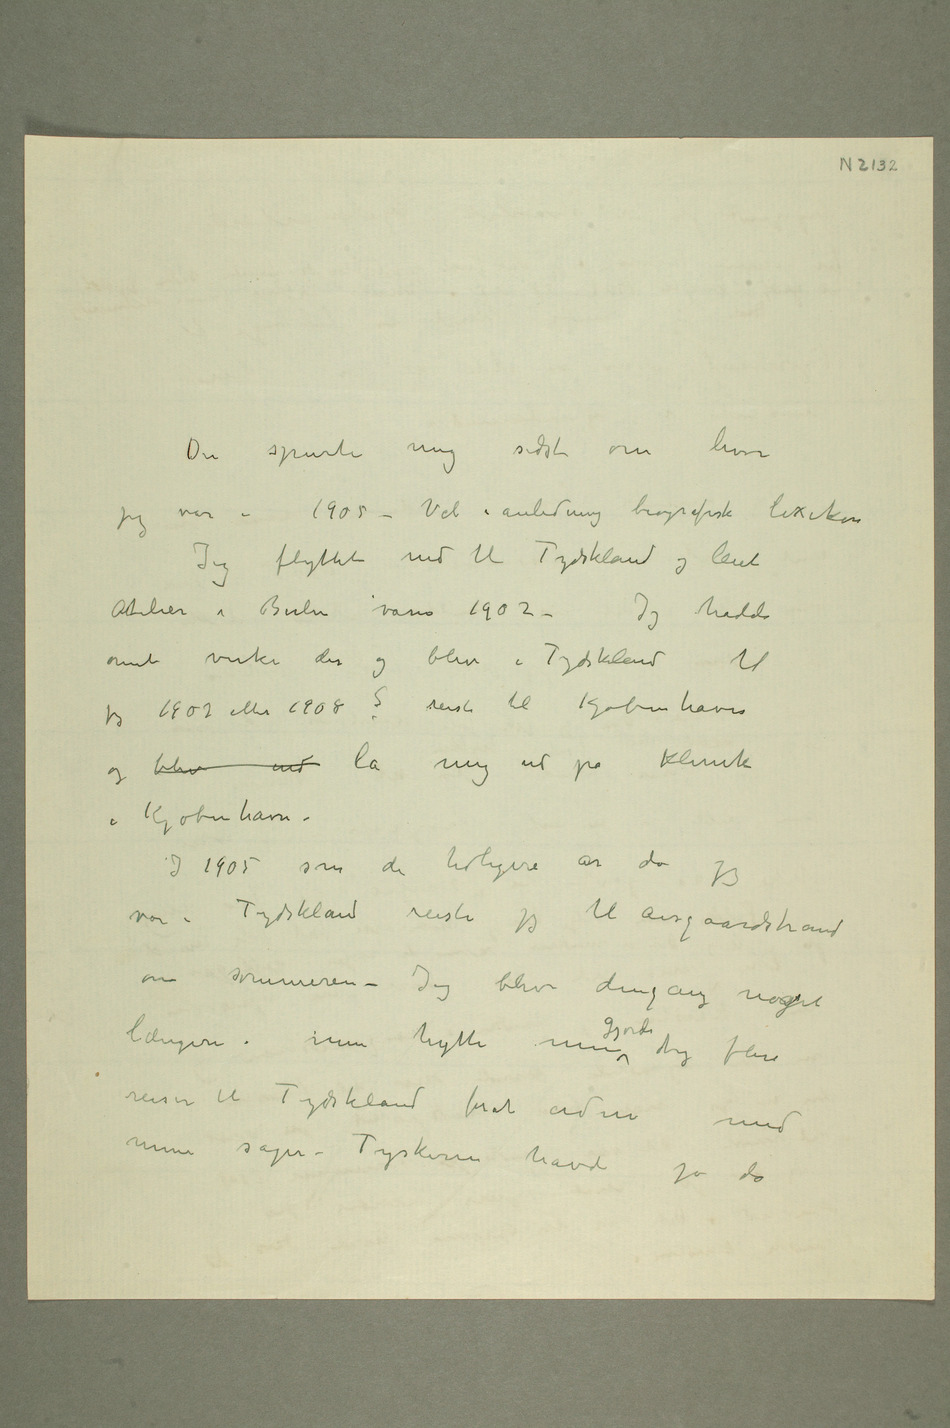 N 2132
Du spurte mig sidst om hvor
jeg var i 1905 – Vel i anledning biografisk lexikon
Jeg flyttet ned til Tydskland og leiet
Atelier i Berlin 1902 – Jeg hadde
mit virke der og blev i Tydskland til
jeg 1907 eller 1908 ? reiste til Kjøbenhavn
og blev ind la mig ind på Klinik
i Kjøbenhavn –
I 1905 som de tidligere år da jeg
var i Tydskland reiste jeg til Aasgaardstrand
om sommeren – Jeg blev dengang noget
længere i min hytte men gjorde dog flere
reiser til Tydskland for at ordne med
mine sager – Tyskerne havde jo da